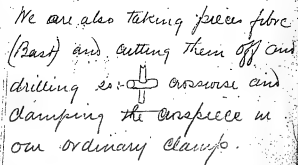 We are also taking pieces fibre
(Bast) and cutting them off and
drilling so:- crosswise and
clamping the crosspiece in
our ordinary clamps.